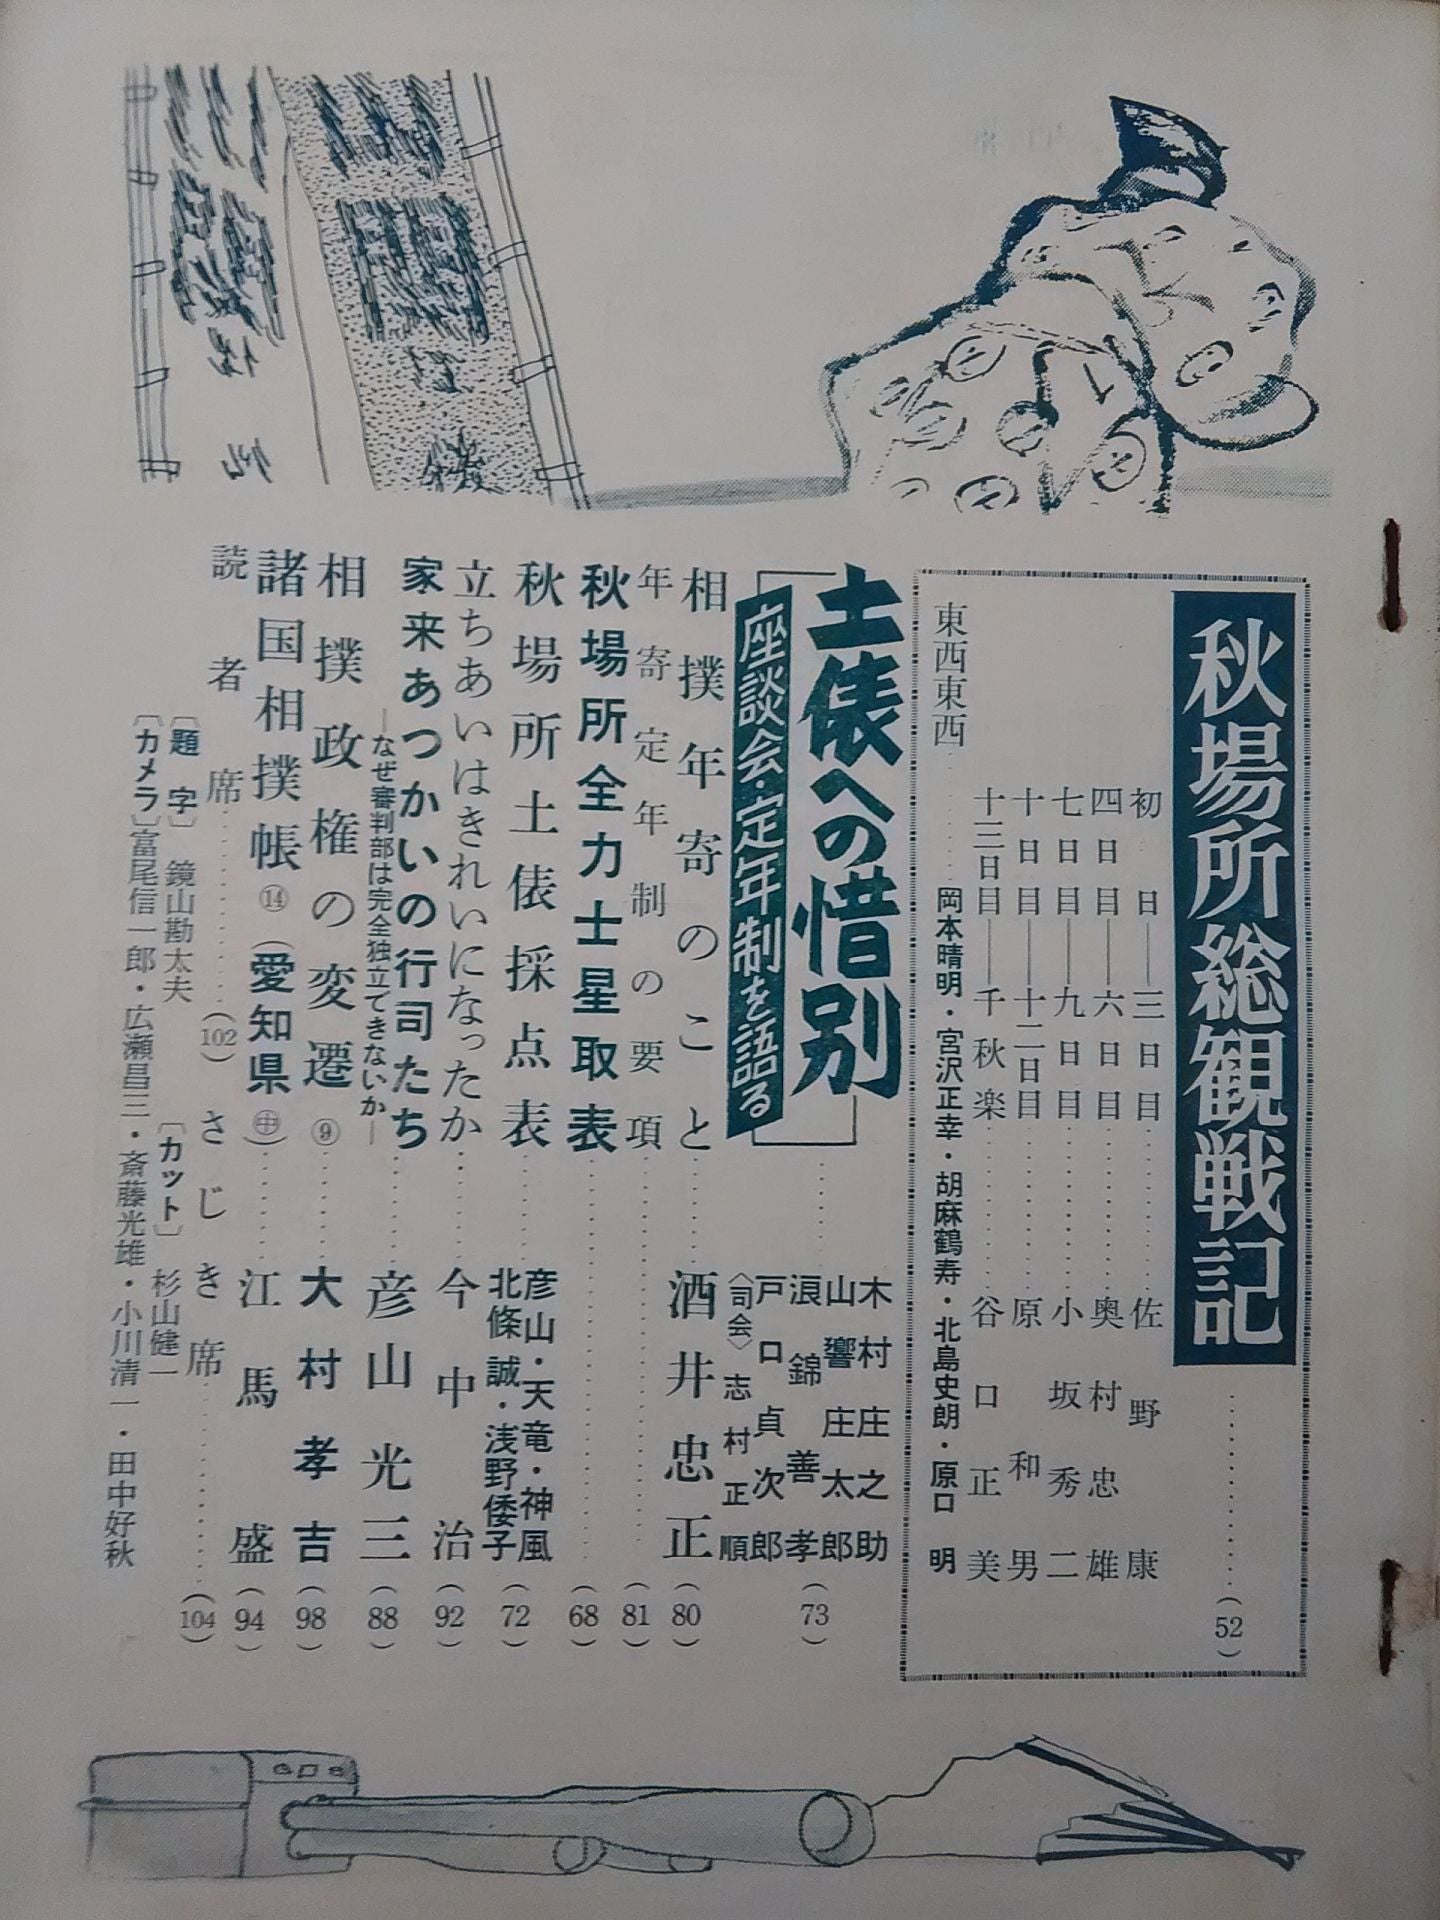 秋場所総観戦記……………(52)
初日――三日目…………佐野康
四日目――六日目…………奥村忠雄
七日目――九日目…………小坂秀二
十日目――十二日目…………原和男
十三日目――千秋楽…………谷口正美
東西東西……岡本晴明・宮沢正幸・胡麻鶴寿・北島史朗・原口明
土俵への惜別
座談会・定年制を語る
木村庄之助
山響庄太郎
浪錦善孝
戸口貞次郎
〈司会〉志村正順
(73)
相撲年寄のこと…………酒井忠正(80)
年寄定年制の要項…………(81)
秋場所全力士星取表…………(68)
秋場所土俵採点表…………彦山・天竜・神風
北條誠・浅野倭子(72)
立ちあいはきれいになったか…………今中治(92)
家来あつかいの行司たち…………彦山光三(88)
―なぜ審判部は完全独立できないか―
相撲政権の変遷⑨…………大村孝吉(98)
諸国相撲帳⑭(愛知県㊥)…………江馬盛(94)
読者席…………(102)
さじき席…………(104)
〔題字〕鏡山勘太夫
〔カット〕杉山健一
〔カメラ〕富尾信一郎・広瀬昌三・斎藤光雄・小川清一・田中好秋